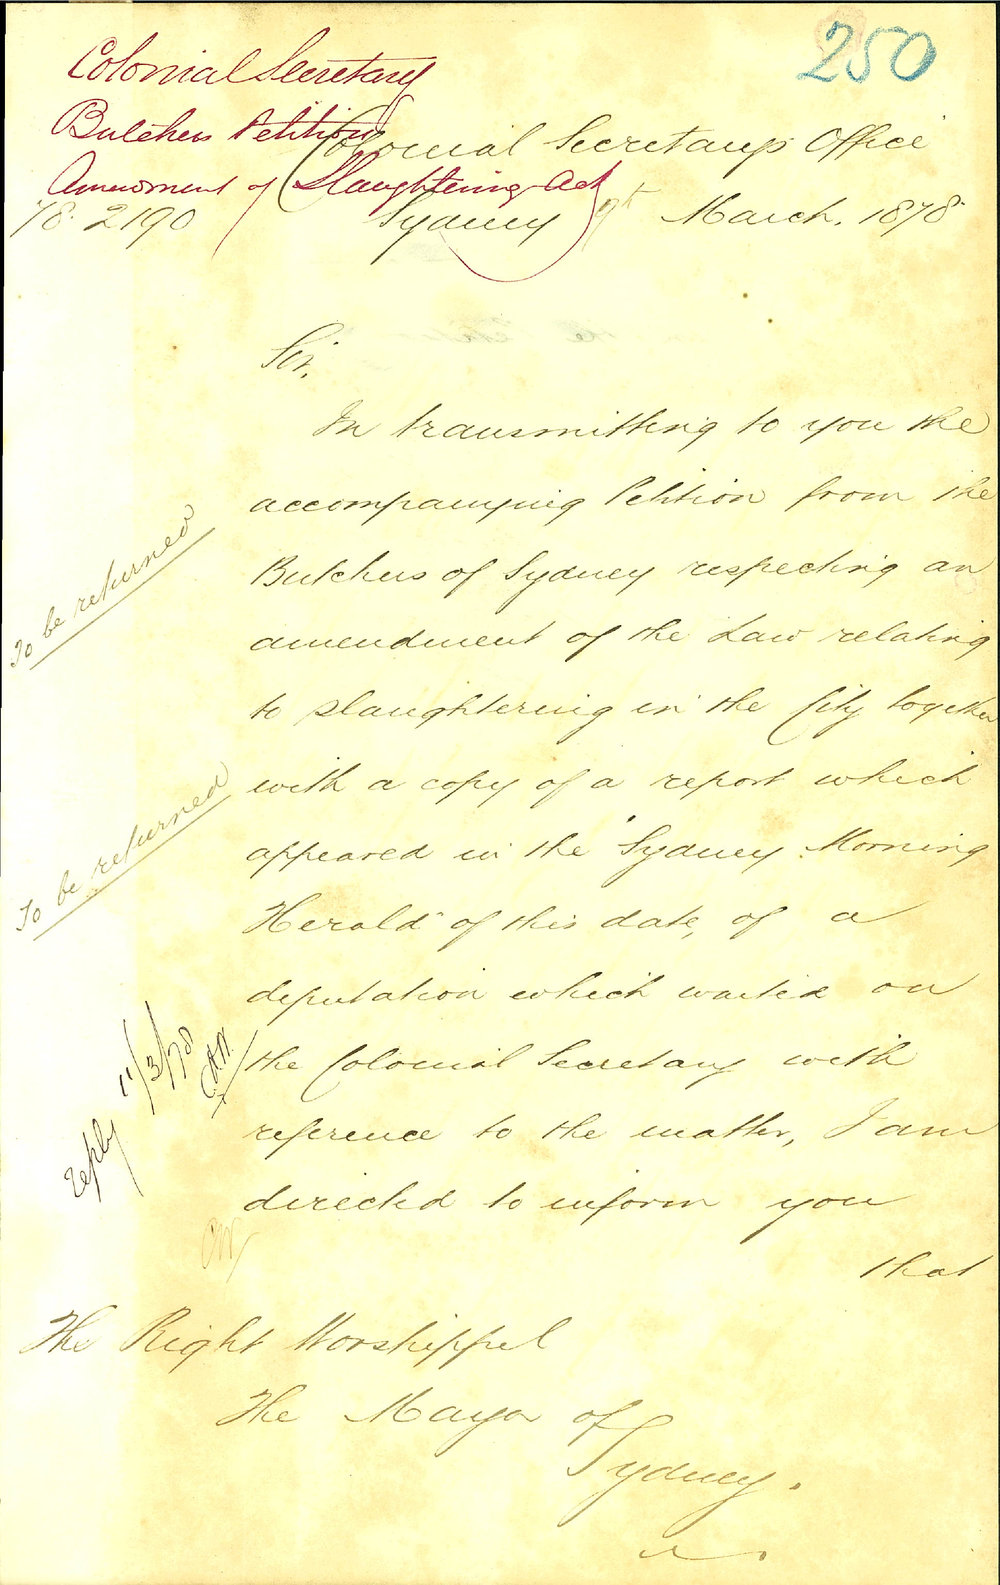 250
Colonial Secretary
Butchers Petition
Amendment of Slaughtering Act
Colonial Secretary's Office
78. 2190
Sydney 9th March. 1878
Sir,
In transmitting to you the
accompanying Petition from the
Butchers of Sydney respecting an
amendment of the Law relating
to slaughtering in the City together
with a copy of a report which
appeared in the "Sydney Morning
Herald" of this date, of a
deputation which waited on
the Colonial Secretary with
reference to the matter, I am
directed to inform you
that
To be returned
To be returned
reply 11/3/78
The Right Worshippful
The Mayor of
Sydney.